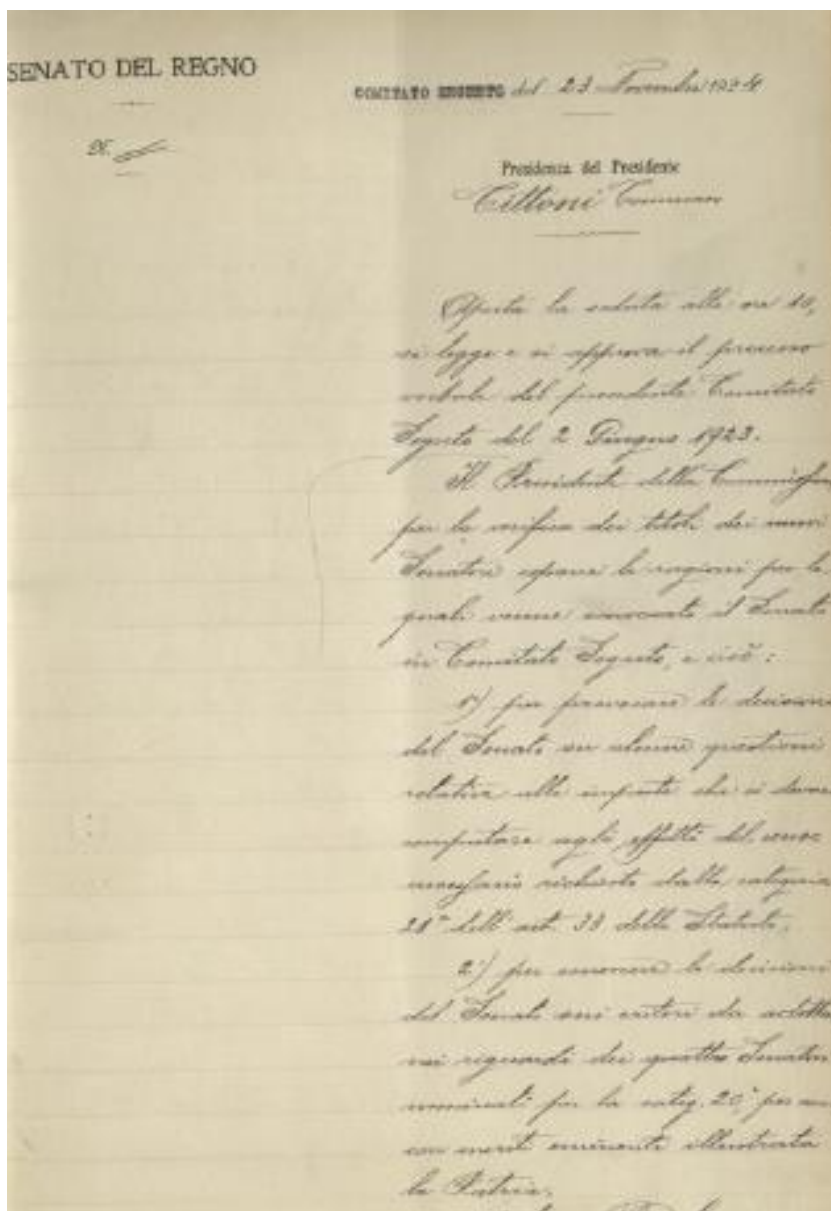 SENATO DEL REGNO
COMITATO SEGRETO del 23 Novembre 1924
N.
Presidenza del Presidente
Tittoni Tommaso
Aperta la seduta alle ore 10,
si legge e si approva il processo
verbale del precedente Comitato
Segreto del 2 Giugno 1923.
Il Presidente della Commissione
per la verifica dei titoli dei nuovi
Senatori espone le ragioni per le
quali venne convocato il Senato
in Comitato Segreto, e cioè:
1°) per provocare le decisioni
del Senato su alcune questioni
relative alle imposte che si devono
computare agli effetti del censo
necessario richiesto dalla categoria
21ª dell'art. 33 dello Statuto;
2°) per conoscere le decisioni
del Senato sui criteri da adottare
nei riguardi dei quattro Senatori
nominati per la categ. 20ª per aver
con meriti eminenti illustrata
la Patria.